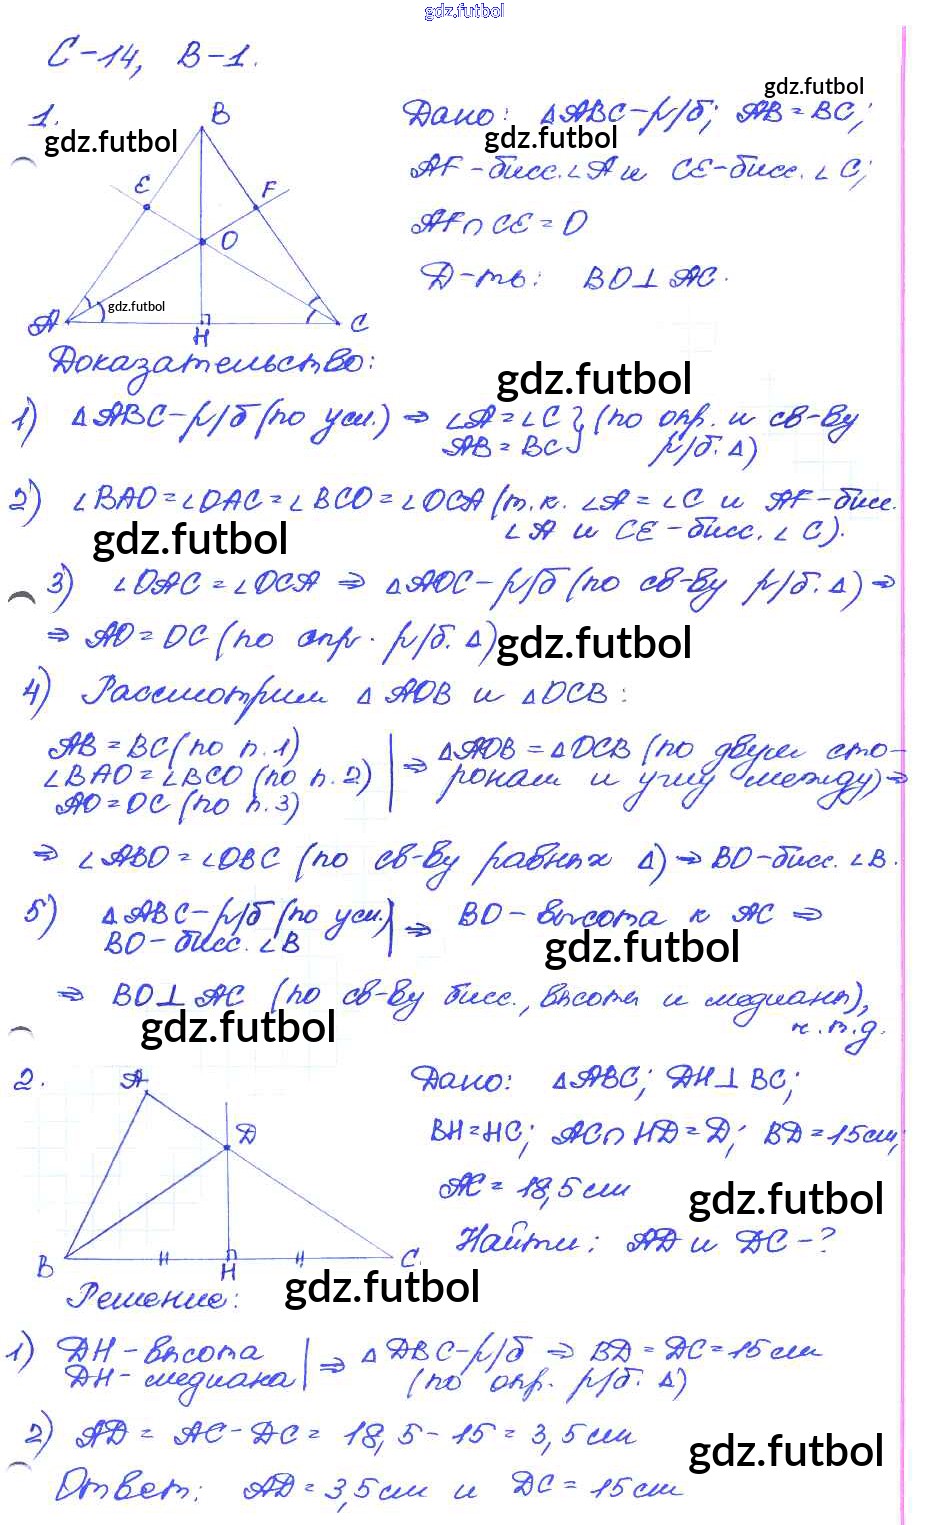 gdz.futbol
С-14, В-1.
gdz.futbol
1.
gdz.futbol
B
E
F
O
A
gdz.futbol
H
C
Дано: ΔABC-р/б; AB=BC;
gdz.futbol
AF-бисс.∠A и CE-бисс.∠C;
AF∩CE=O
Д-ть: BO⊥AC.
Доказательство:
gdz.futbol
1) ΔABC-р/б (по усл.) ⇒ ∠A=∠C } (по опр. и св-ву
AB=BC р/б. Δ)
2) ∠BAO=∠OAC=∠BCO=∠OCA (т.к. ∠A=∠C и AF-бисс.
∠A и CE-бисс. ∠C).
gdz.futbol
3) ∠OAC=∠OCA ⇒ ΔAOC-р/б (по св-ву р/б. Δ) ⇒
⇒ AO=OC (по опр. р/б. Δ)
gdz.futbol
4) Рассмотрим ΔAOB и ΔOCB:
AB=BC (по п.1)
∠BAO=∠BCO (по п.2)
AO=OC (по п.3)
⇒ ΔAOB=ΔOCB (по двум сто-
ронам и углу между) ⇒
⇒ ∠ABO=∠OBC (по св-ву равных Δ) ⇒ BO-бисс. ∠B.
5) ΔABC-р/б (по усл.)
BO-бисс. ∠B
⇒ BO-высота к AC ⇒
gdz.futbol
⇒ BO⊥AC (по св-ву бисс., высоты и медианы),
ч.т.д.
gdz.futbol
2.
A
D
B
H
C
Дано: ΔABC; DH⊥BC;
BH=HC; AC∩HD=D; BD=15см;
AC=18,5см
gdz.futbol
Найти: AD и DC-?
gdz.futbol
Решение:
1) DH-высота
DH-медиана
⇒ ΔDBC-р/б ⇒ BD=DC=15см
(по опр. р/б. Δ)
2) AD=AC-DC=18,5-15=3,5см
gdz.futbol
Ответ: AD=3,5см и DC=15см